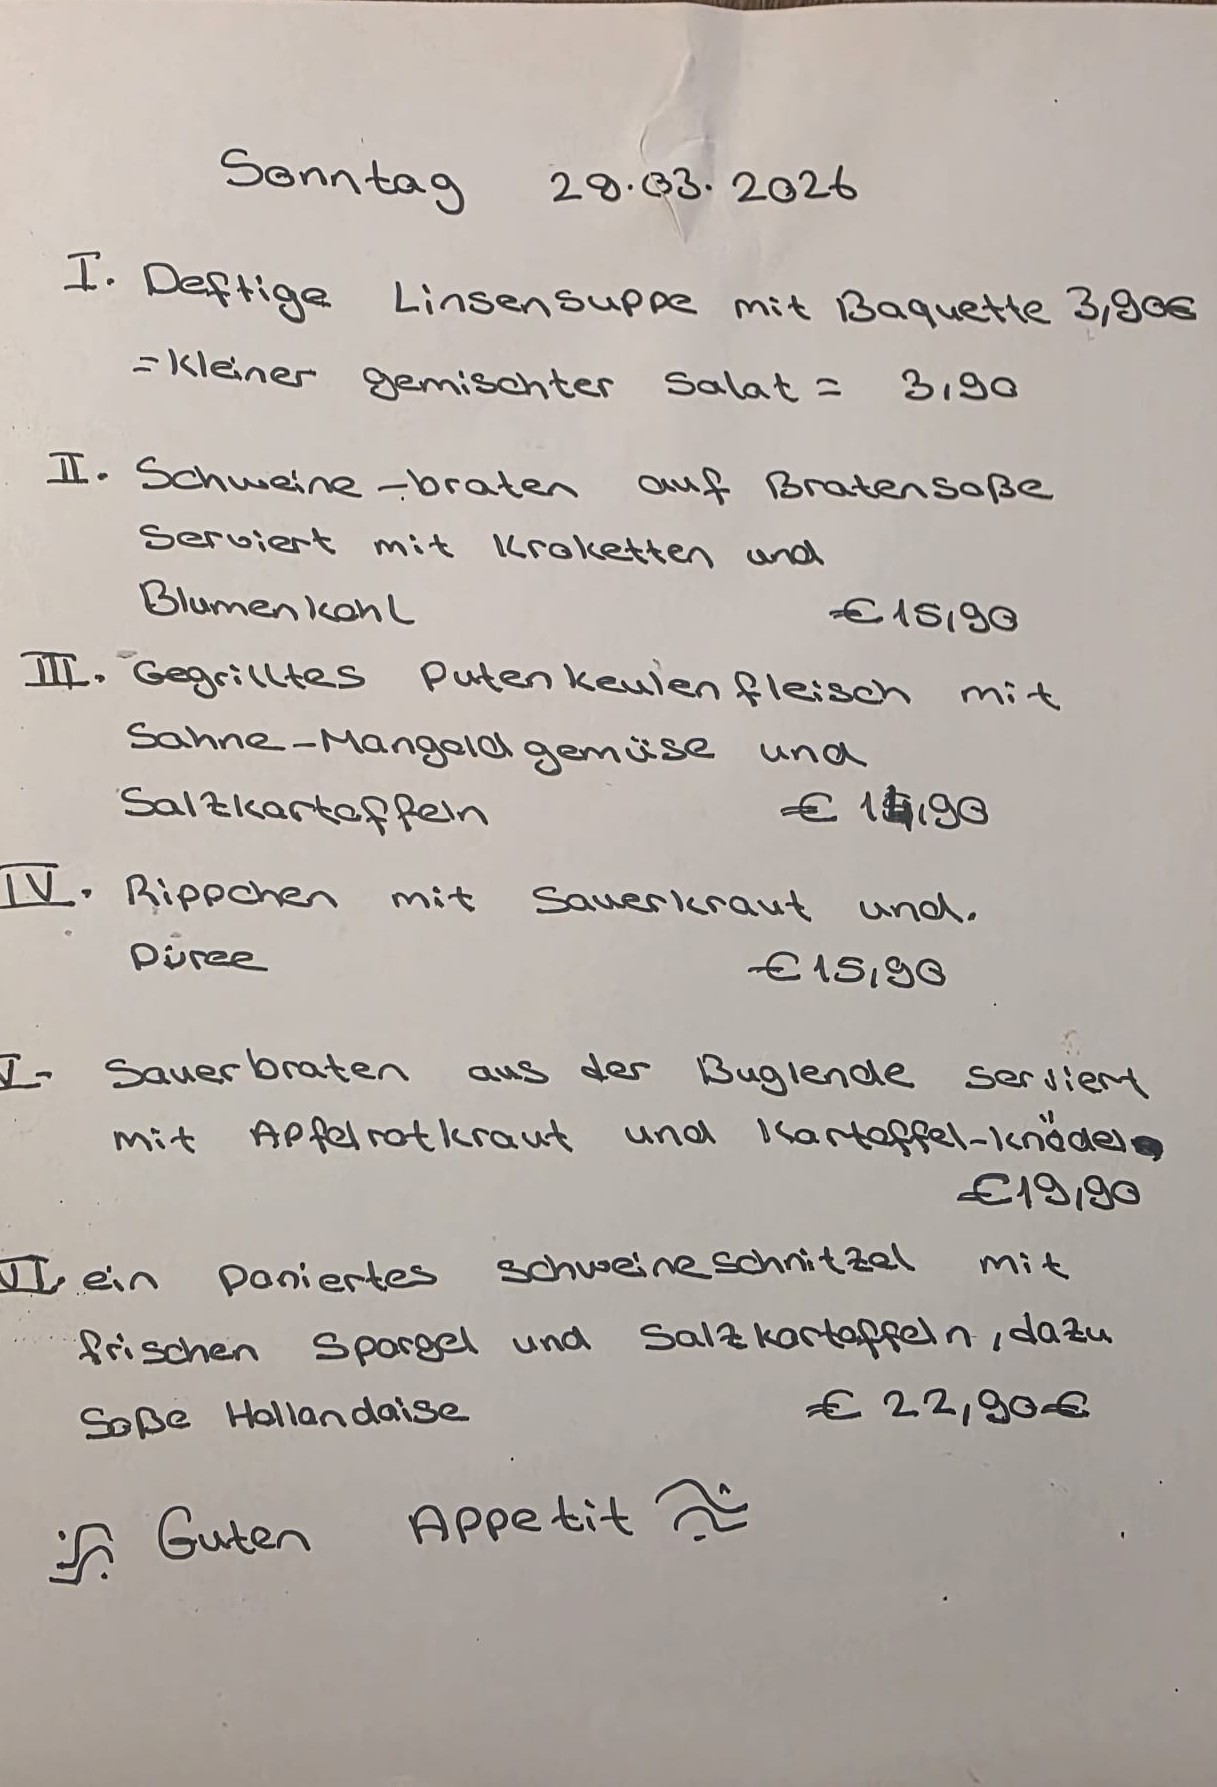 Sonntag 29.03.2026
I. Deftige Linsensuppe mit Baquette 3,90€
=Kleiner gemischter Salat = 3,90
II. Schweine-braten auf Bratensoße
Serviert mit Kroketten und
Blumenkohl €15,90
III. Gegrilltes Putenkeulenfleisch mit
Sahne-Mangoldgemüse und
Salzkartoffeln € ,90
IV. Rippchen mit Sauerkraut und.
Püree €15,90
V- Sauerbraten aus der Buglende serviert
mit Apfelrotkraut und Kartoffel-knödel
€19,90
VI. ein paniertes schweineschnitzel mit
frischen Spargel und Salzkartoffeln, dazu
Soße Hollandaise € 22,90€
Guten Appetit